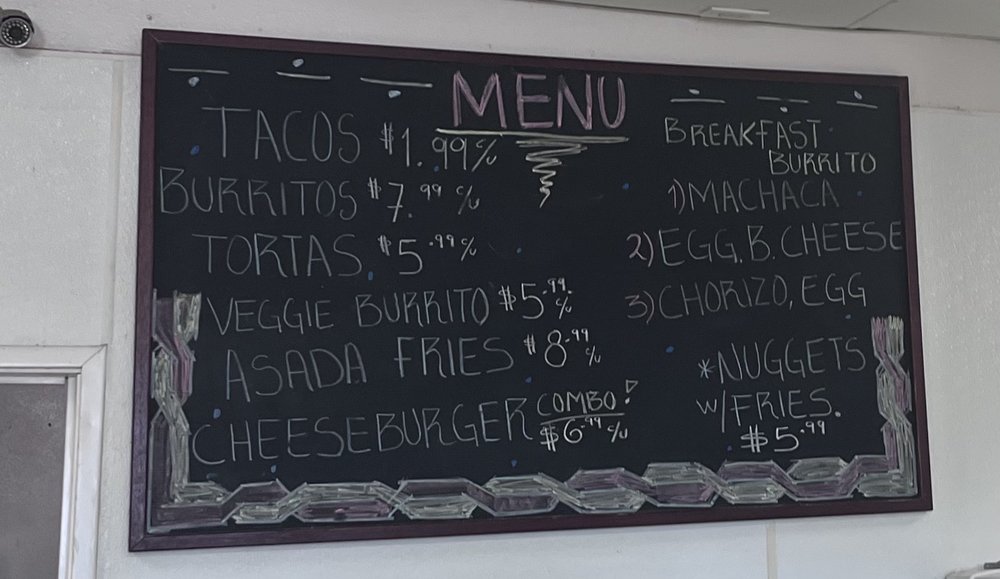 MENU
TACOS $1.99 c/u
BURRITOS $7.99 c/u
TORTAS $5.99 c/u
VEGGIE BURRITO $5.99 c/u
ASADA FRIES $8.99 c/u
CHEESEBURGER COMBO!
$6.99 c/u
BREAKFAST
BURRITO
1) MACHACA
2) EGG, B. CHEESE
3) CHORIZO, EGG
*NUGGETS
W/FRIES.
$5.99